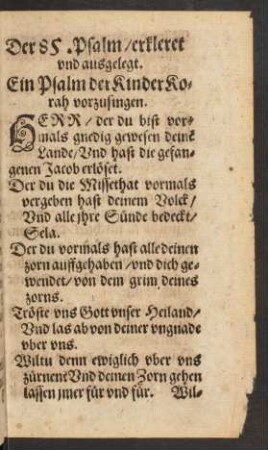 Der 85. Psalm / erkleret
vnd ausgelegt.
Ein Psalm der Kinder Ko-
rah vorzusingen.
HERR / der du bist vor-
mals gnedig gewesen deinē
Lande / Vnd hast die gefan-
genen Jacob erlöset.
Der du die Missethat vormals
vergeben hast deinem Volck /
Vnd alle jhre Sünde bedeckt /
Sela.
Der du vormals hast alle deinen
zorn auffgehaben / vnd dich ge-
wendet / von dem grim deines
zorns.
Tröste vns Gott vnser Heiland /
Vnd las ab von deiner vngnade
vber vns.
Wiltu denn ewiglich vber vns
zürnen? Vnd deinen Zorn gehen
lassen jmer für vnd für. Wil-